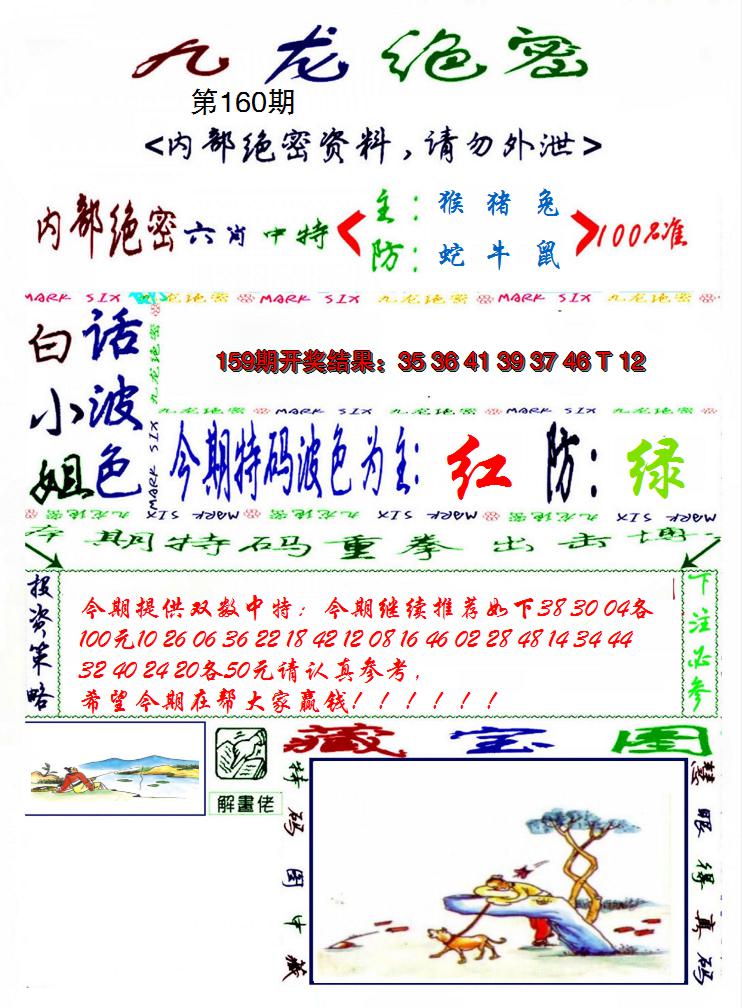 九龙绝密
第160期
<内部绝密资料,请勿外泄>
内部绝密六肖中特
主：猴 猪 兔
防：蛇 牛 鼠
100%准
MARK SIX 九龙绝密 MARK SIX 九龙绝密 MARK SIX 九龙绝密
白小姐
话波色
159期开奖结果：35 36 41 39 37 46 T 12
九龙绝密 MARK SIX 九龙绝密 MARK SIX 九龙绝密
今期特码波色为主：红 防：绿
本期特码重拳出击博
投资策略
今期提供双数中特：今期继续推荐如下38 30 04各
100元10 26 06 36 22 18 42 12 08 16 46 02 28 48 14 34 44
32 40 24 20各50元请认真参考，
希望今期在帮大家赢钱！！！！！！
下注必参
藏宝图
解畫佬
特码图中藏
慧眼得真码